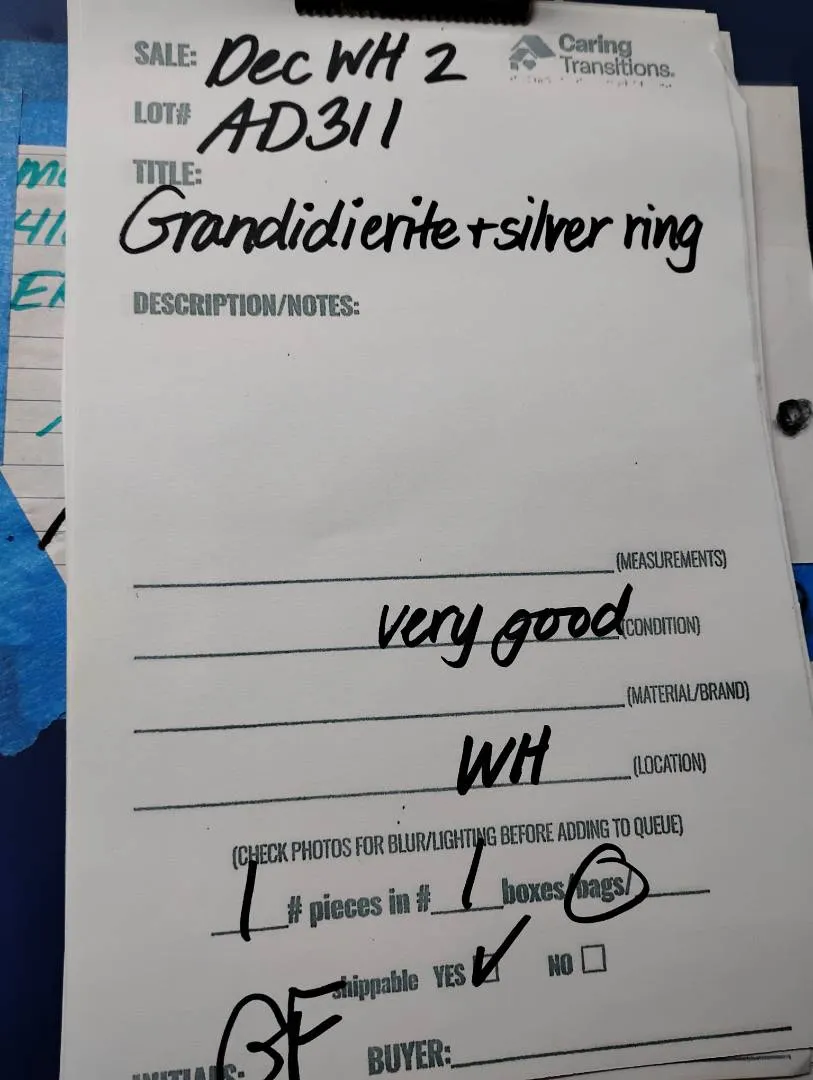 SALE: Dec WH 2
Caring
Transitions.
LOT# AD311
TITLE:
Grandidierite + silver ring
DESCRIPTION/NOTES:
(MEASUREMENTS)
very good (CONDITION)
(MATERIAL/BRAND)
WH (LOCATION)
(CHECK PHOTOS FOR BLUR/LIGHTING BEFORE ADDING TO QUEUE)
1 # pieces in # 1 boxes/bags/
shippable YES ✓ NO
INITIALS: BF BUYER: